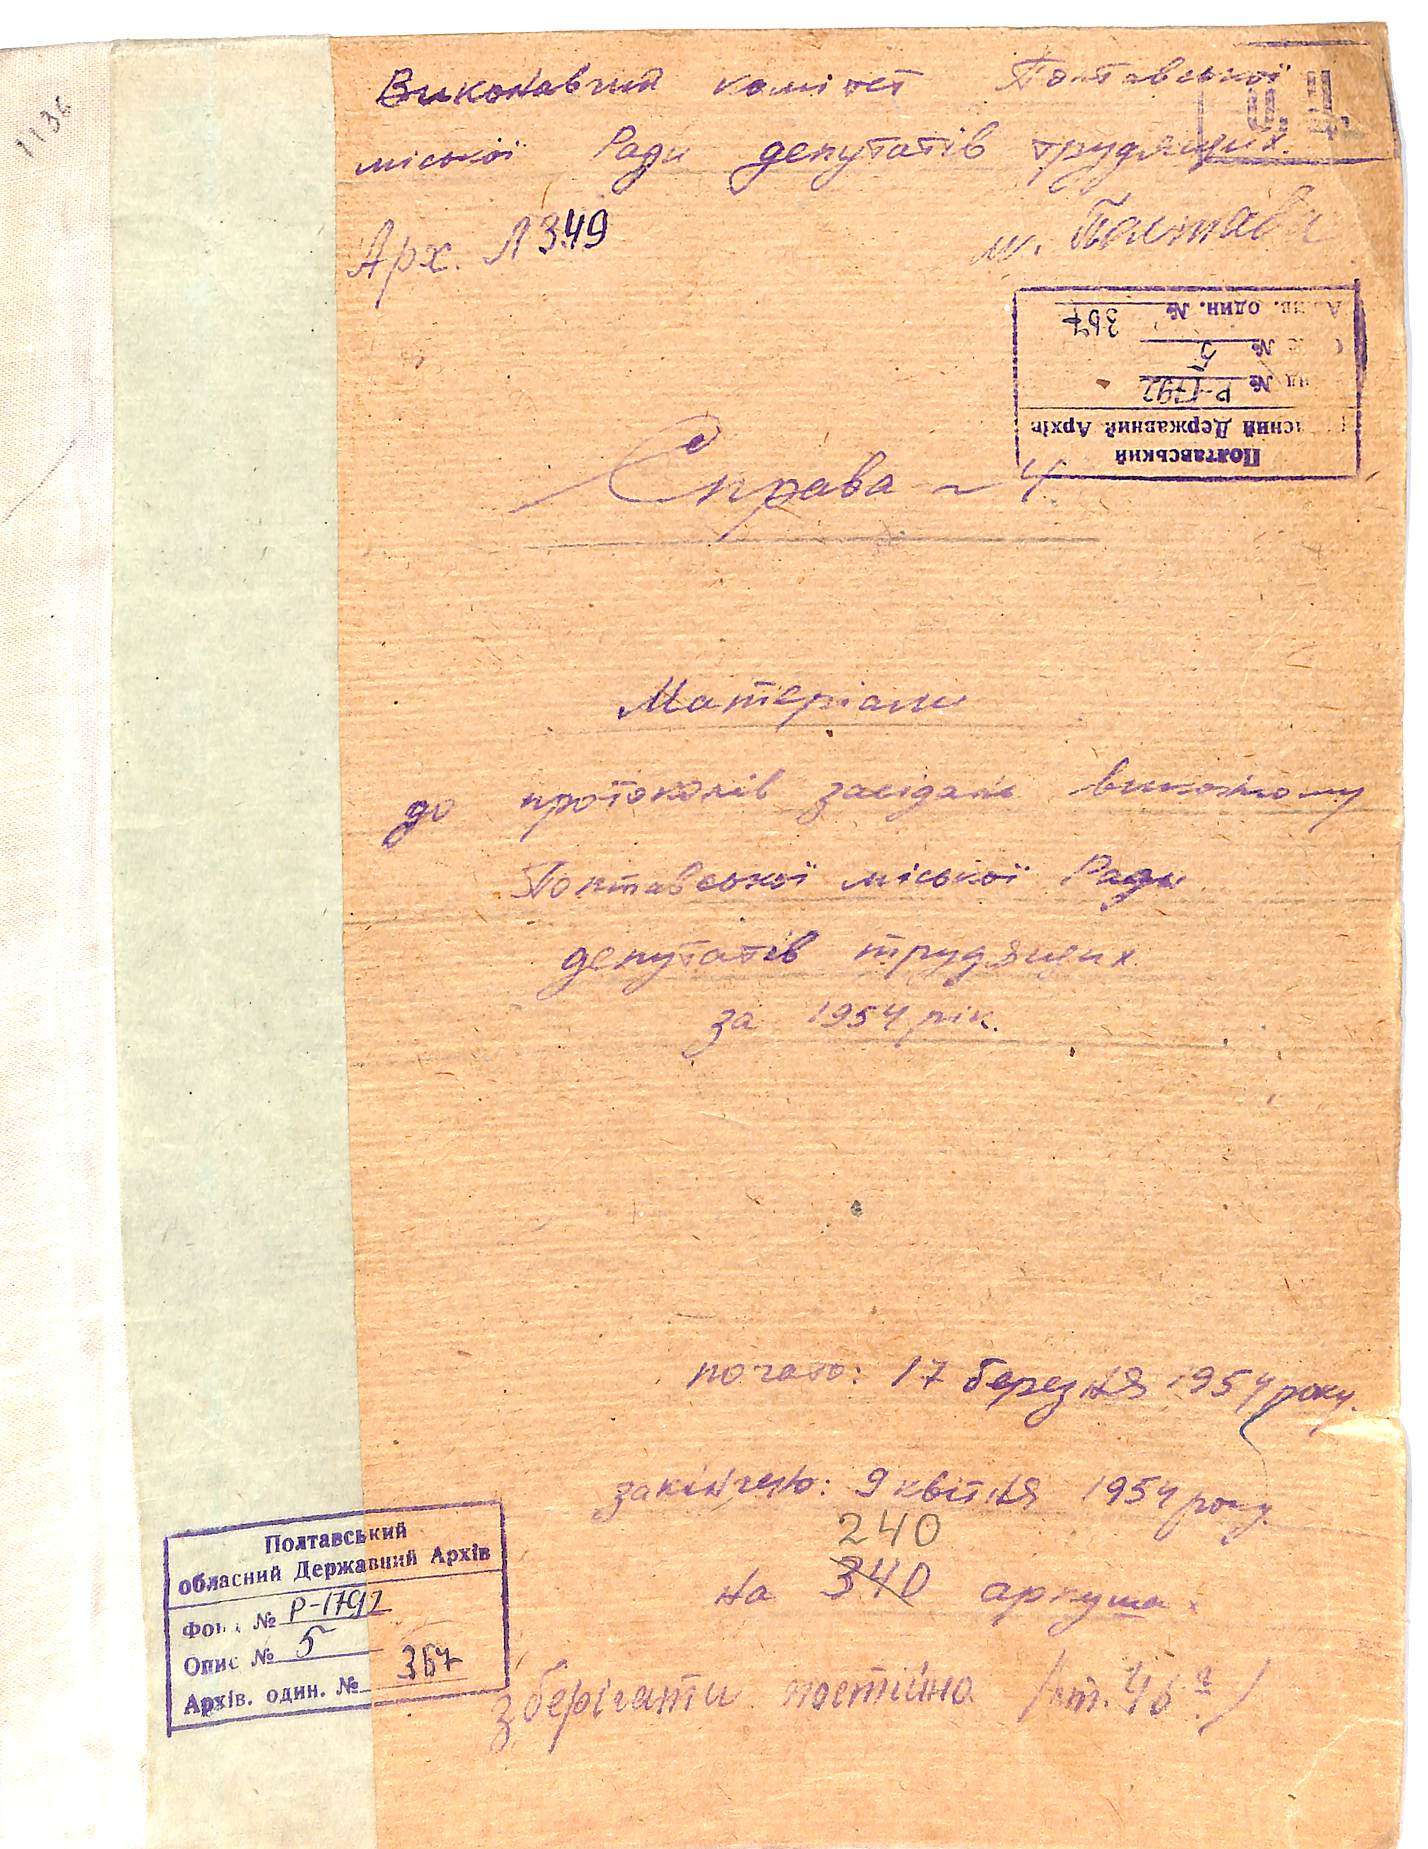 1136
Виконавчий комітет Полтавської
міської Ради депутатів трудящих.
Арх. Л 349
м. Полтава
Полтавський
Державний Архів
№ Р-1792
№ 5
один. № 367
Справа ~ 4.
Матеріали
до протоколів засідань виконкому
Полтавської міської Ради
депутатів трудящих
за 1954 рік.
почато: 17 березня 1954 року.
закінчено: 9 квітня 1954 року
240
на 340 аркушах.
зберігати постійно /ст. 46а/
Полтавський
обласний Державний Архів
Фонд № Р-1792
Опис № 5
Архів. один. № 367